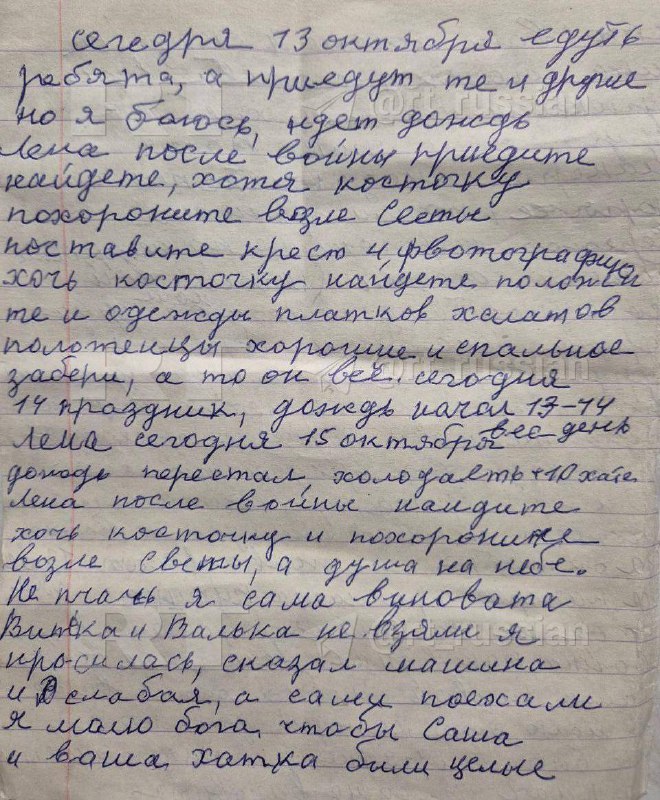 сегедря 13 октября едуть
ребята, а приедут те и другие
но я боюсь, идет дождь
Лена после войны приедите
найдете, хотя косточку
похороните возле Светы
поставите крест и фвотографию
хочь косточку найдете положи
те и одежды платков халатов
полотенцы хорошие и спальное
забери, а то он все. сегодня
14 праздник, дождь начал 13-14
Лена сегодня 15 октября вес день
дождь перестал, холодаеть +10 хате
Лена после войны найдите
хочь косточку и похороните
возле Светы, а душа на небе.
Не плачь я сама виновата
Витька и Валька не взяли я
просилась, сказал машина
и слабая, а сами поехали
я молю бога чтобы Саша
и ваша хатка били целые
@rt_russian
@rt_russian
@rt_russian
RT
RT